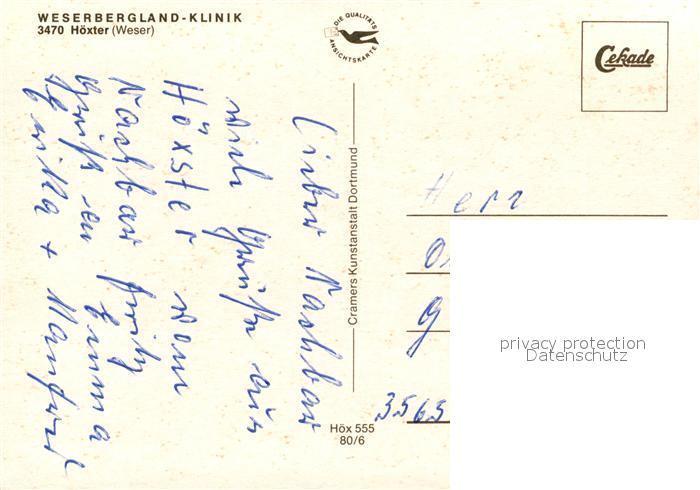 WESERBERGLAND-KLINIK
3470 Höxter (Weser)
DIE QUALITÄTS
ANSICHTSKARTE
Cekade
Lieber Nachbar
viele Grüße aus
Höxster vom
Nachbar Fritz
Grüße an Emma
+ Manfred
Cramers Kunstanstalt Dortmund
Höx 555
80/6
Herr
G
3565
privacy protection
Datenschutz